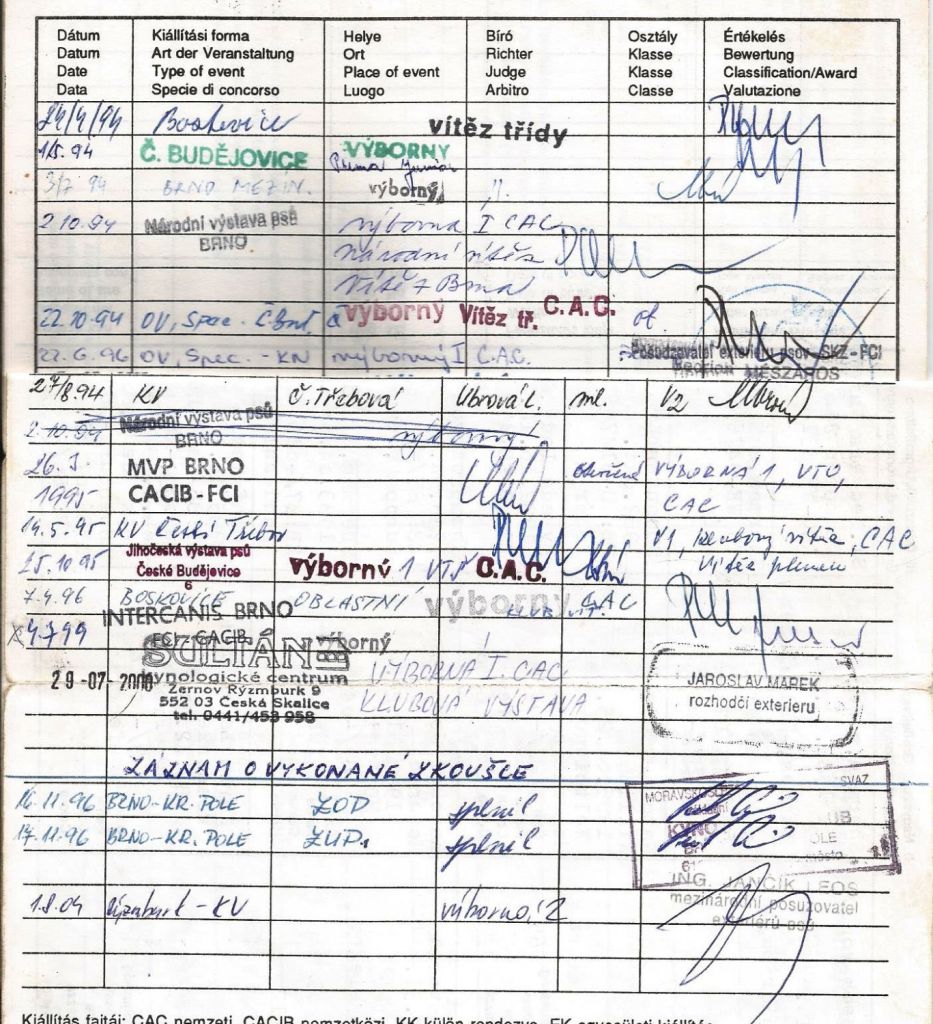 Dátum Kiállítási forma Helye Bíró Osztály Értékelés
Datum Art der Veranstaltung Ort Richter Klasse Bewertung
Date Type of event Place of event Judge Klasse Classification/Award
Data Specie di concorso Luogo Arbitro Classe Valutazione
24/4/94 Boskovice vítěz třídy
1/5.94 Č. BUDĚJOVICE VÝBORNÝ
3/7 94 BRNO MEZIN. výborný
2.10.94 Národní výstava psů výborná I CAC
BRNO Národní vítěz
Vítěz Brna
22.10.94 OV, Spec. výborný Vítěz tř. C.A.C. ot.
22.6.96 OV, Spec. - KN výborný I C.A.C. Posudzovateľ exteriéru psov - SKZ - FCI
MÉSZÁROS
27/8.94 KV Č. Třebová Ubrová L. ml. V2
2.10.94 Národní výstava psů výborný
BRNO
26. MVP BRNO VÝBORNÁ 1, VTO,
1995 CACIB - FCI CAC
14.5.95 KV Česká Třebov V1, klubový vítěz, CAC
25.10.95 Jihočeská výstava psů výborný 1 VTŠ C.A.C. Vítěz plemen
České Budějovice
6
7.4.96 BOSKOVICE OBLASTNÍ výborný CAC
INTERCANIS BRNO
4.7 99 FCI - CACIB výborný
SULTÁN
29-07-2000 kynologické centrum VÝBORNÁ I. CAC
Žernov Rýzmburk 9 KLUBOVÁ VÝSTAVA
552 03 Česká Skalice
tel. 0441/453 958
JAROSLAV MAREK
rozhodčí exteriéru
ZÁZNAM O VYKONANÉ ZKOUŠCE
SVAZ
16.11.96 BRNO-KR. POLE ZOP splnil
17.11.96 BRNO-KR. POLE ZUP1 splnil
ING. JANČÍK LEOŠ
mezinárodní posuzovatel
exteriérů psů
1.8.04 Rýzmburk - KV výborná 2
Kiállítás fajtái: CAC nemzeti, CACIB nemzetközi, KK külön rendezve, EK egyesületi kiállítás